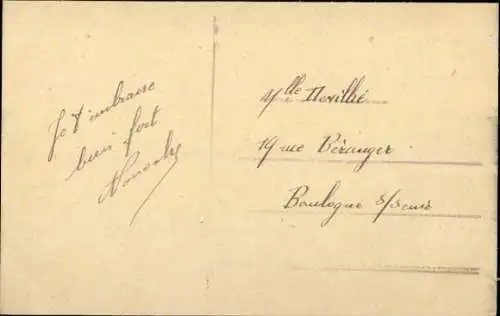 Je t'embrasse
bien fort
Mlle
19 rue Béranger
Boulogne s/Seine